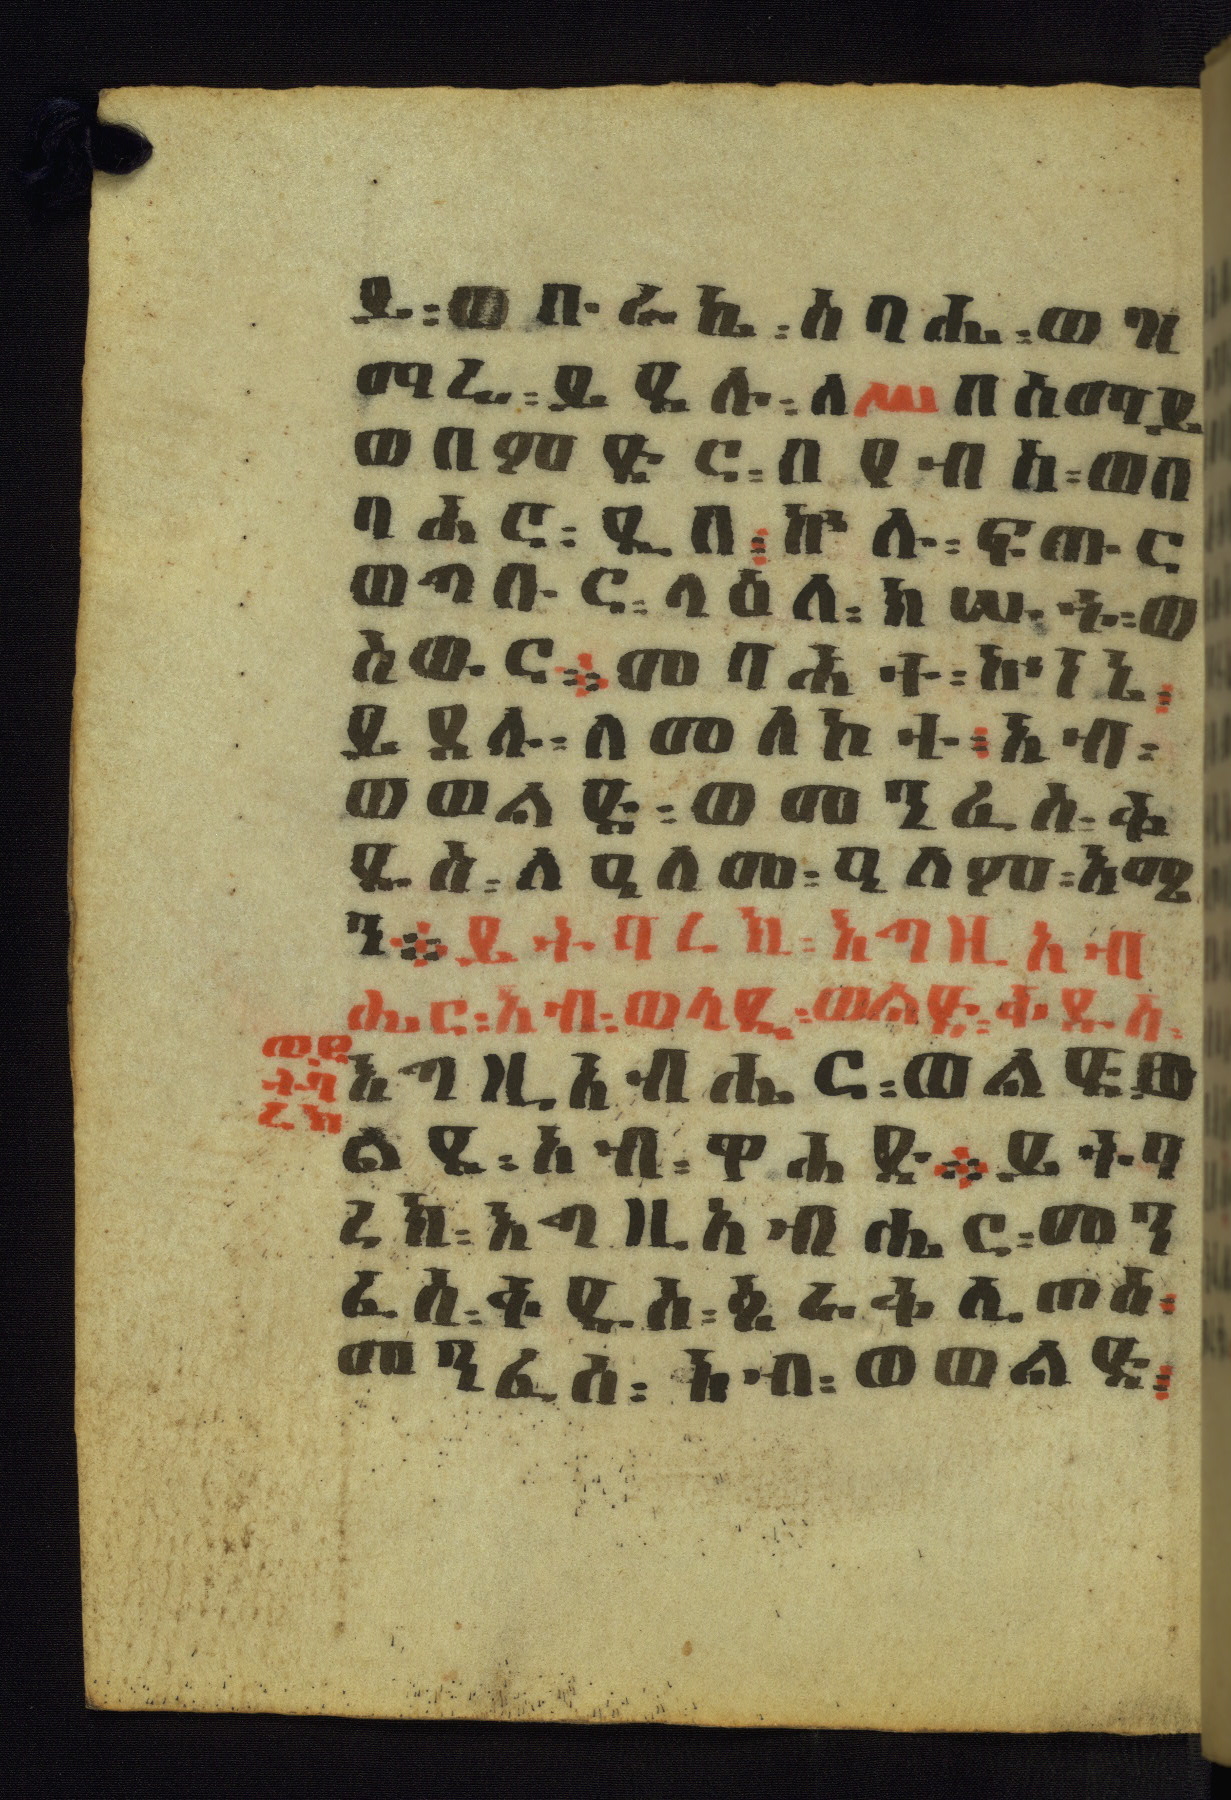 ይ፡ወ ቡ ራ ኬ፡ስ ባ ሔ፡ወ ዝ
ማ ሬ፡ይ ደ ሉ፡ለ ሥሉ በ ሰ ማ ይ
ወ በ ም ድ ር፡በ የ ብ ስ፡ወ በ
ባ ሕ ር፡ዲ በ፡ኵ ሉ፡ፍ ጡ ር
ወ ግ ቡ ር፡ላ ዕ ለ፡ክ ሡ ት፡ወ
ስ ው ር፡መ ባ ሕ ት፡ኵ ነ ኔ፡
ይ ደ ሉ፡ለ መ ለ ኮ ት፡አ ብ፡
ወ ወ ል ድ፡ወ መ ን ፈ ስ፡ቅ
ዱ ስ፡ለ ዓ ለ መ፡ዓ ለ ም፡አ ሜ
ን ይ ት ባ ረ ክ፡እ ግ ዚ አ ብ
ሔ ር፡አ ብ፡ወ ላ ዲ፡ወ ል ድ፡ቅ ዱ ስ፡
ወ ይ
ት ባ
ረ ክ
እ ግ ዚ አ ብ ሔ ር፡ወ ል ድ፡ወ
ል ደ፡አ ብ፡ዋ ሕ ድ ይ ት ባ
ረ ክ፡እ ግ ዚ አ ብ ሔ ር፡መ ን
ፈ ስ፡ቅ ዱ ስ፡ጰ ራ ቅ ሊ ጦ ስ፡
መ ን ፈ ሰ፡አ ብ፡ወ ወ ል ድ፡